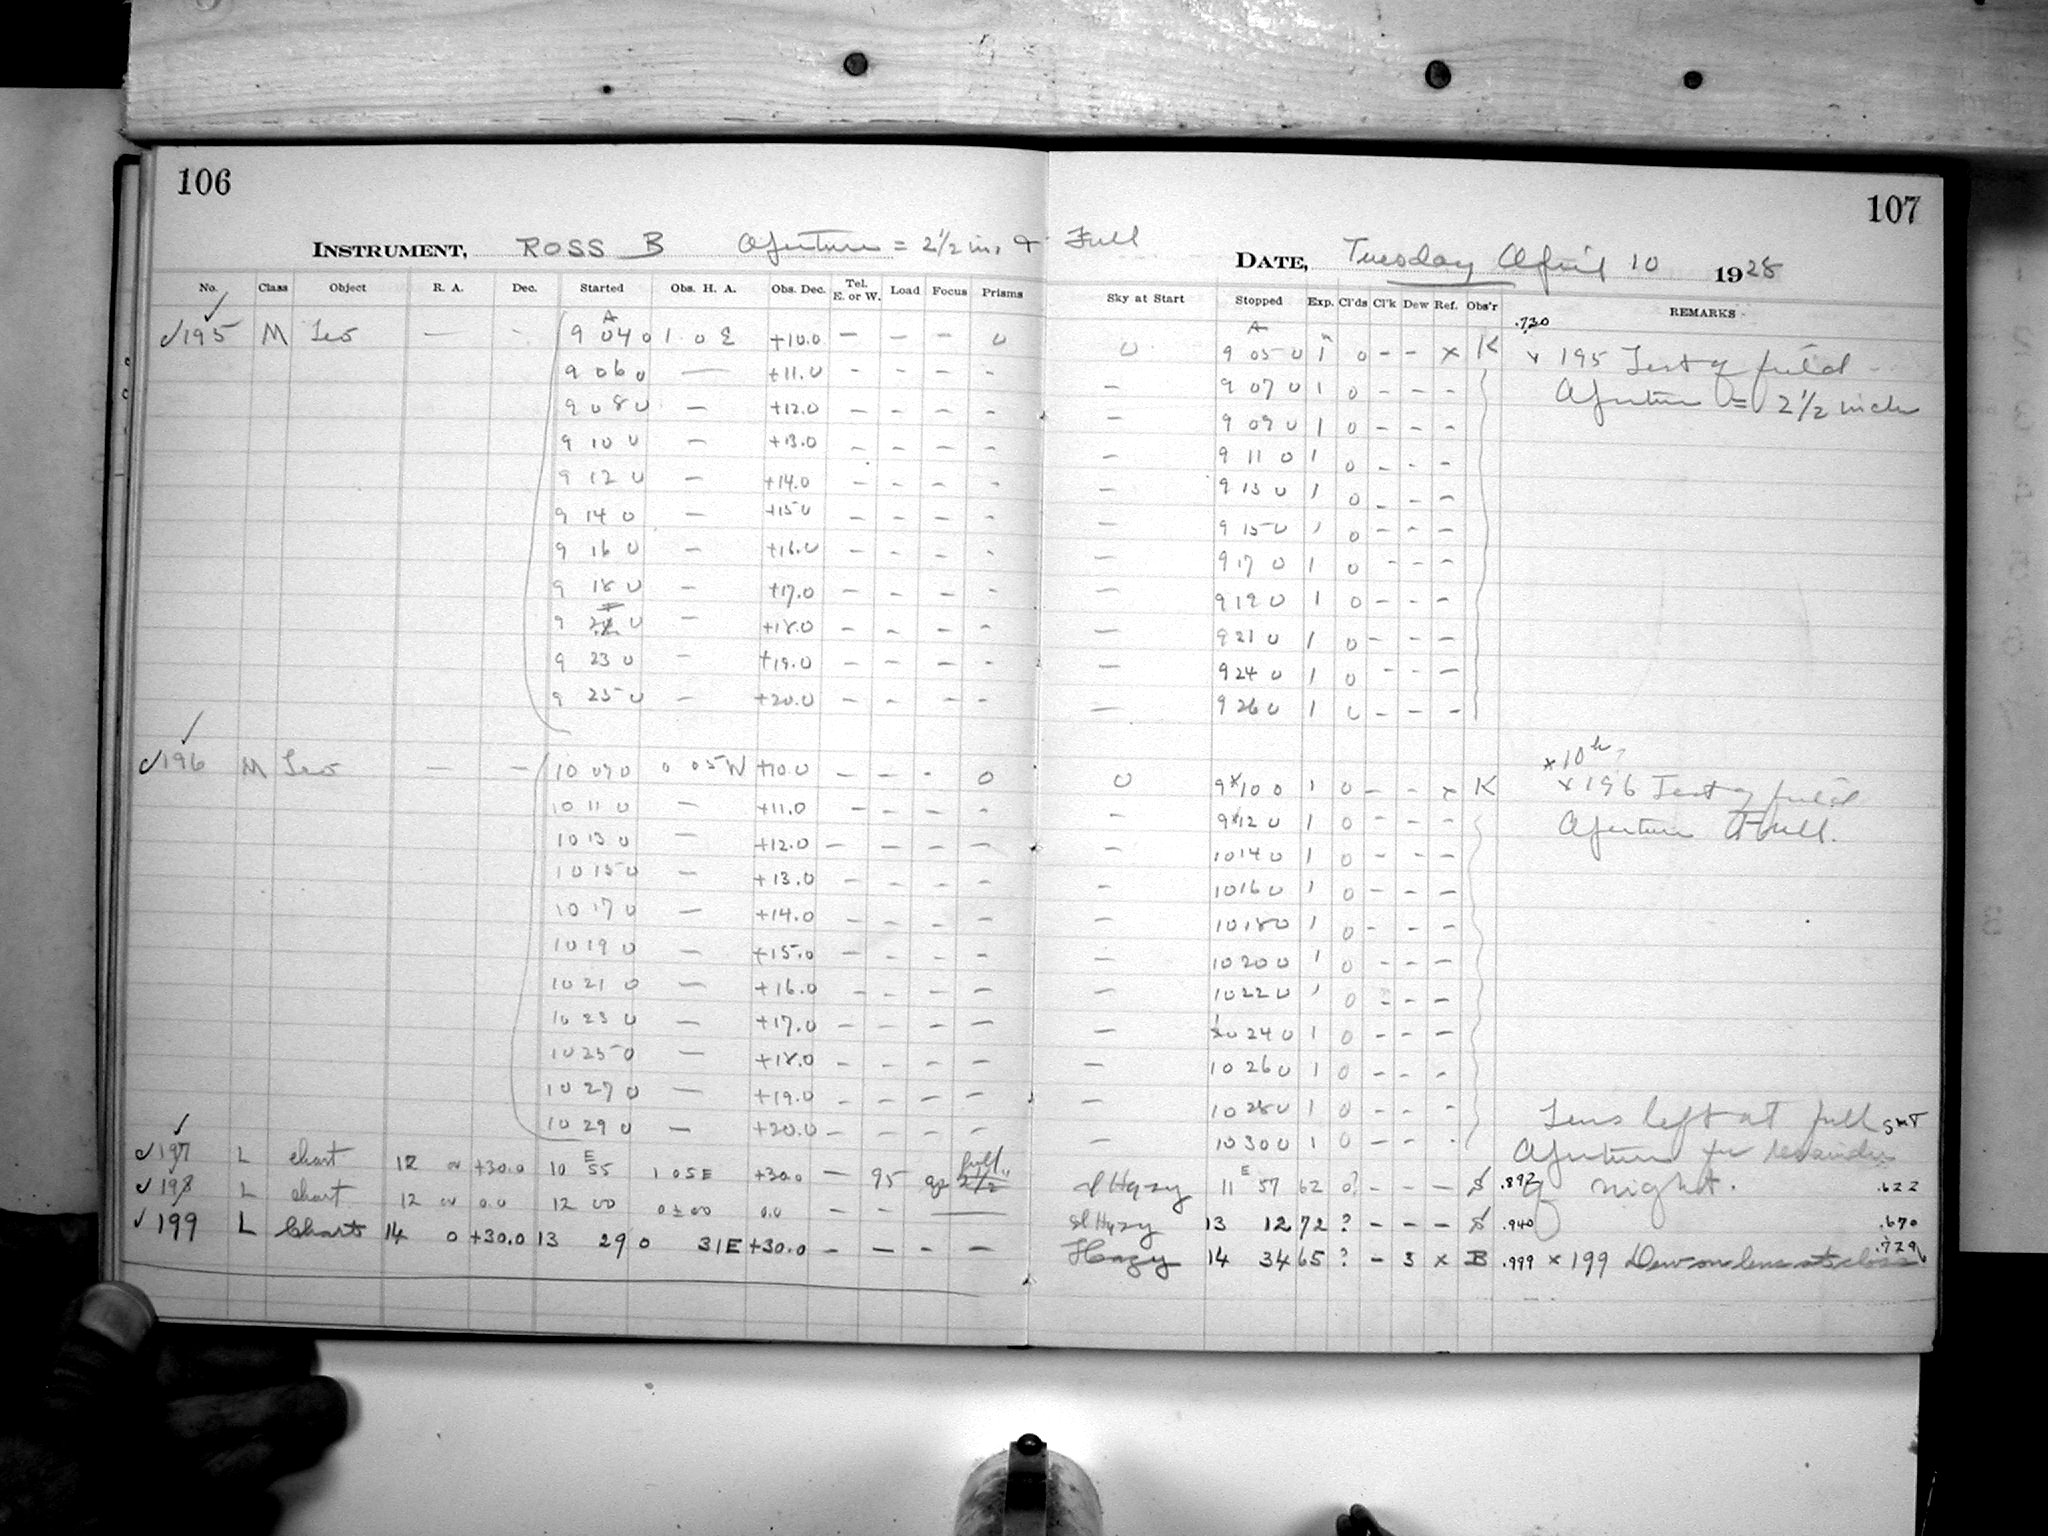 106
107
INSTRUMENT, ROSS B Aperture = 2 1/2 in. & Full
DATE, Tuesday April 10 1928
No. Class Object R. A. Dec. Started Obs. H. A. Obs. Dec. Tel. E. or W. Load Focus Prisms Sky at Start Stopped Exp. Cl'ds Cl'k Dew Ref. Obs'r REMARKS
.730
✓195 M Leo — - 9 04 0 1 0 E +10.0 — — — 0 0 9 05 0 1 0 - - x K x 195 Test of field
9 06 0 — +11.0 - - - - — 9 07 0 1 0 - - - Aperture = 2 1/2 inch
9 08 0 — +12.0 — - - - — 9 09 0 1 0 - - -
9 10 0 — +13.0 — - - - — 9 11 0 1 0 - - -
9 12 0 — +14.0 — - - - — 9 13 0 1 0 - - -
9 14 0 — +15.0 — - - - — 9 15 0 1 0 - - -
9 16 0 — +16.0 — - - - — 9 17 0 1 0 - - -
9 18 0 — +17.0 — - - - — 9 19 0 1 0 - - -
9 0 — +18.0 — - - - — 9 21 0 1 0 - - -
9 23 0 — +19.0 — - - - — 9 24 0 1 0 - - -
9 25 0 — +20.0 — - - - — 9 26 0 1 0 - - -
x 10h
✓196 M Leo — — 10 09 0 0 05 W +10.0 — — - 0 0 9x 10 0 1 0 - - x K x 196 Test of field
10 11 0 — +11.0 — - - - — 9x 12 0 1 0 - - - Aperture Full.
10 13 0 — +12.0 — - - - — 10 14 0 1 0 - - -
10 15 0 — +13.0 — - - - — 10 16 0 1 0 - - -
10 17 0 — +14.0 — - - - — 10 18 0 1 0 - - -
10 19 0 — +15.0 — - - - — 10 20 0 1 0 - - -
10 21 0 — +16.0 — - - - — 10 22 0 1 0 - - -
10 23 0 — +17.0 — - - - — 10 24 0 1 0 - - -
10 25 0 — +18.0 — - - - — 10 26 0 1 0 - - -
10 27 0 — +19.0 — - - - — 10 28 0 1 0 - - - Lens left at full
10 29 0 — +20.0 — - - - — 10 30 0 1 0 - - - Aperture for remainder
✓197 L Chart 12 0 +30.0 10 E 55 1 05 E +30.0 — 95 full 2 1/2 sl Hazy 11 E 57 62 0? - - — S .892 of night. .622
✓198 L chart 12 0 0.0 12 00 0 ± 00 0.0 — — —— sl Hazy 13 12 72 ? - - — S .940 .670
✓199 L Chart 14 0 +30.0 13 29 0 31 E +30.0 — — - — Hazy 14 34 65 ? - 3 x B .999 x 199 Dew on lens at close .729